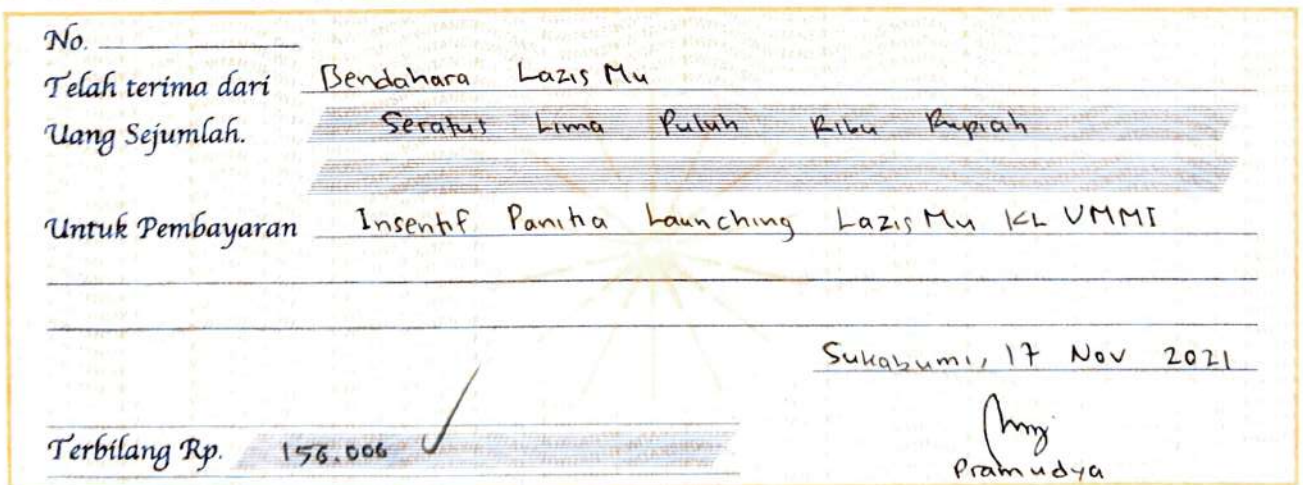 No.
Telah terima dari Bendahara Lazis Mu
Uang Sejumlah. Seratus Lima Puluh Ribu Rupiah
Untuk Pembayaran Insentif Panitia Launching Lazis Mu KL UMMI
Sukabumi, 17 Nov 2021
Terbilang Rp. 150.000
Pramudya